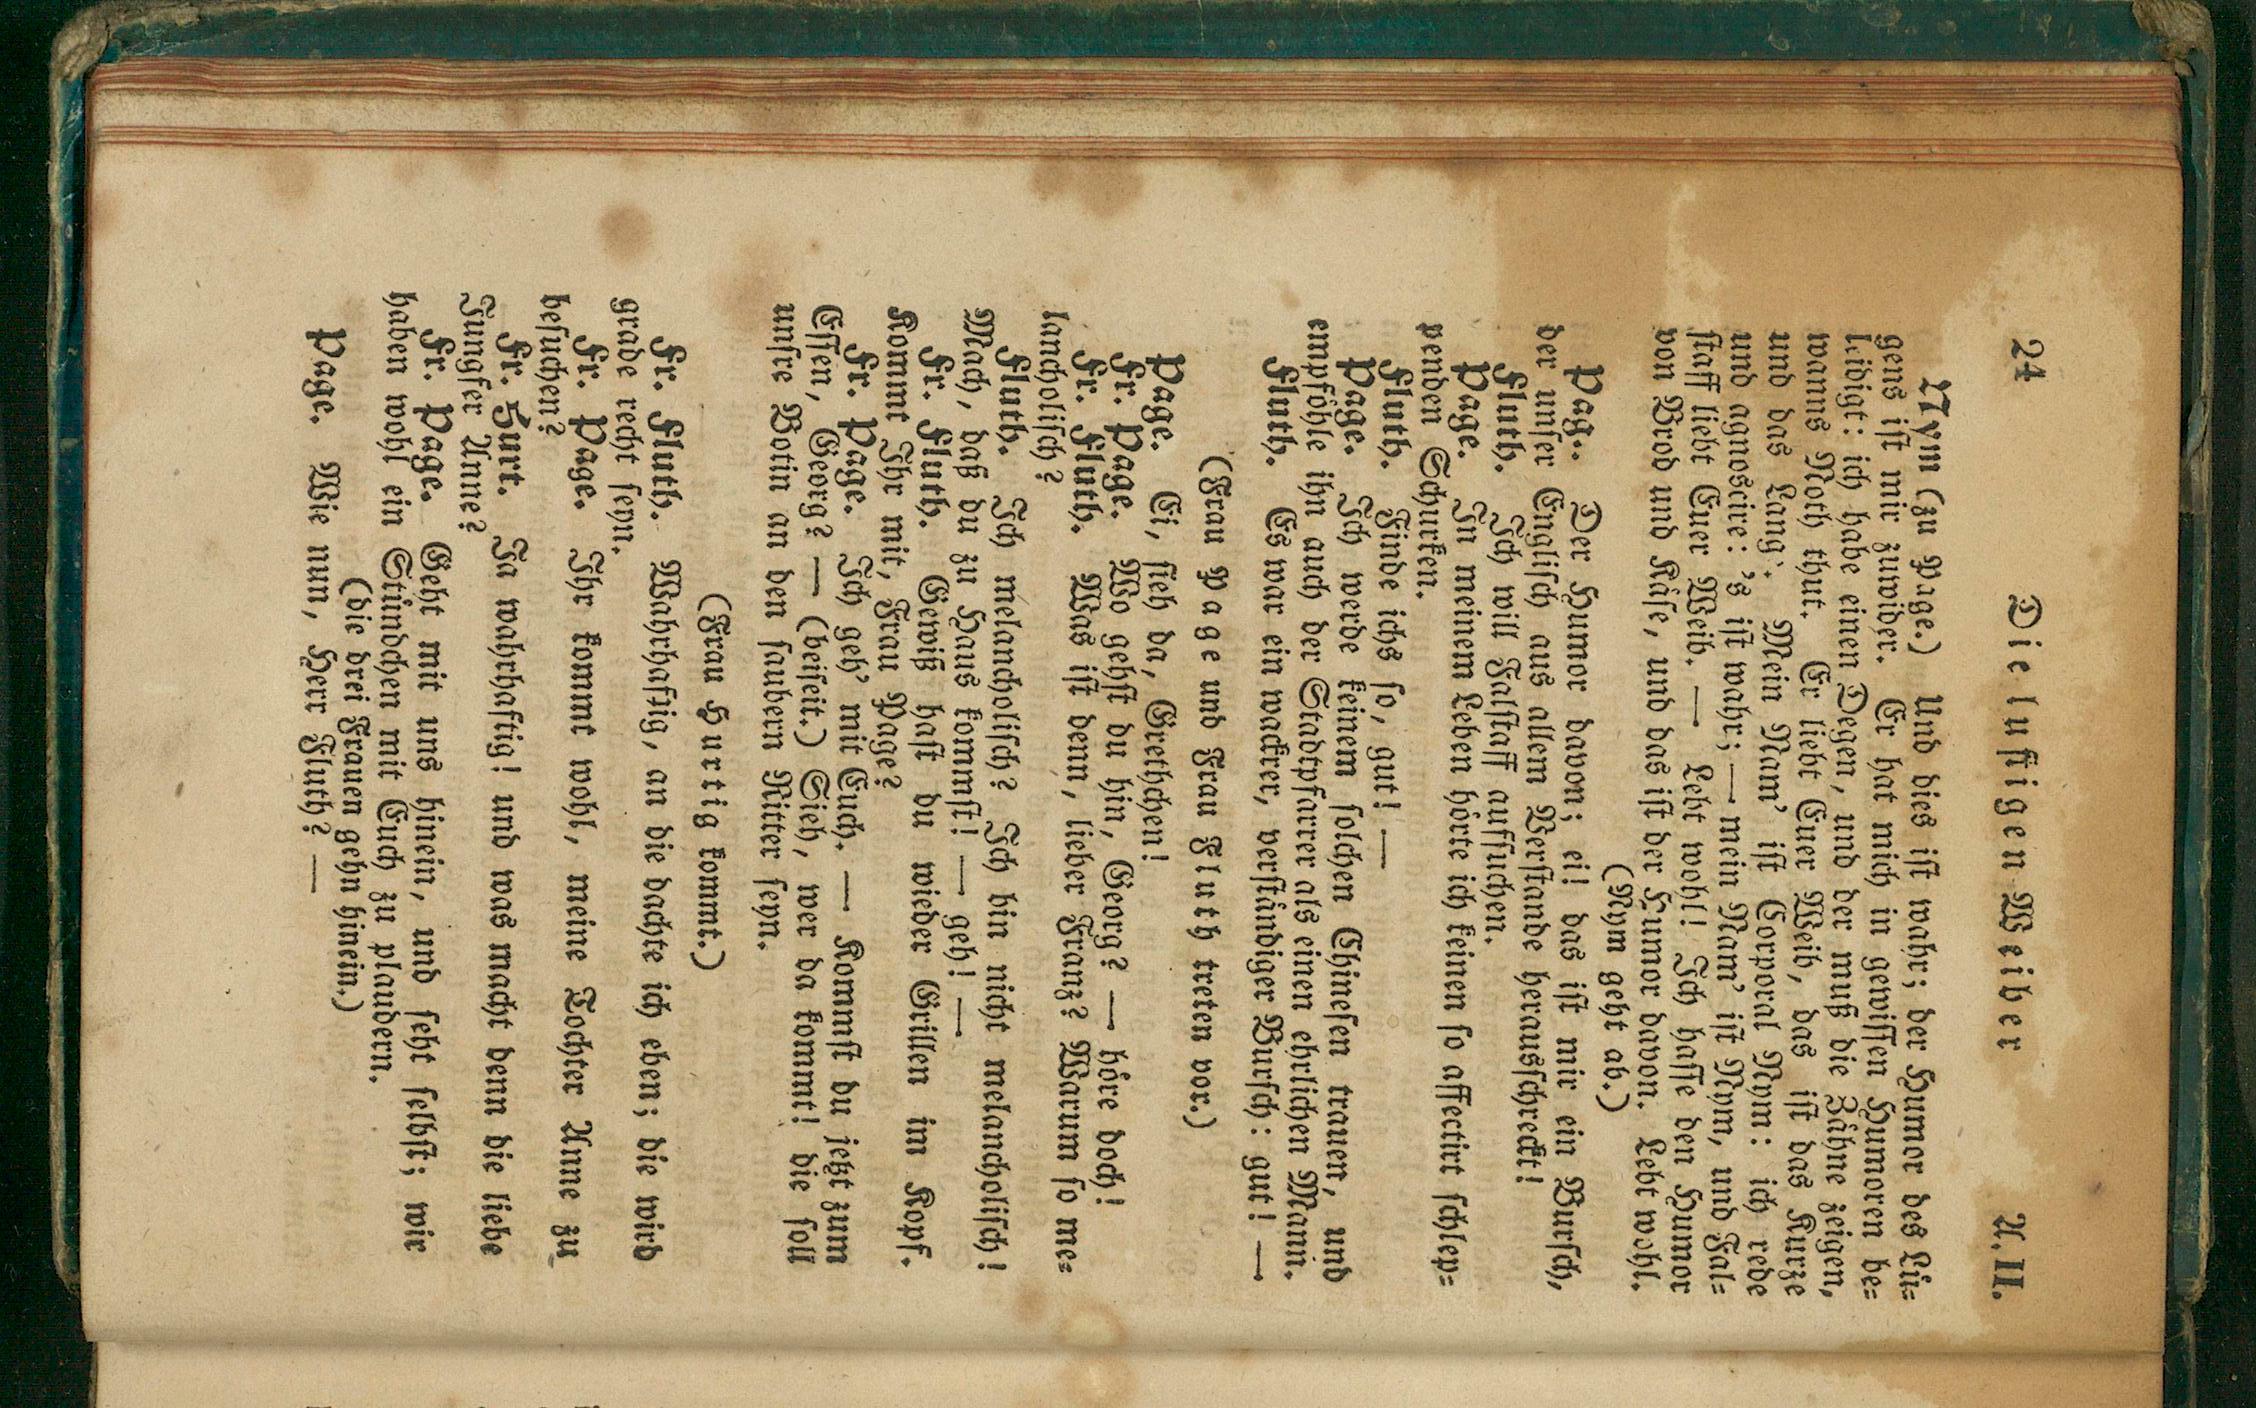 24 Die lustigen Weiber A. II.
Nym (zu Page.) Und dies ist wahr; der Humor des Lü=
gens ist mir zuwider. Er hat mich in gewissen Humoren be=
leidigt: ich habe einen Degen, und der muß die Zähne zeigen,
wanns Noth thut. Er liebt Euer Weib, das ist das Kurze
und das Lang'. Mein Nam' ist Corporal Nym: ich rede
und agnoscire: 's ist wahr; — mein Nam' ist Nym, und Fal=
staff liebt Euer Weib. — Lebt wohl! Ich hasse den Humor
von Brod und Käse, und das ist der Humor davon. Lebt wohl.
(Nym geht ab.)
Page. Der Humor davon; ei! das ist mir ein Bursch,
der unser Englisch aus allem Verstande herausschreckt!
Fluth. Ich will Falstaff aufsuchen.
Page. In meinem Leben hörte ich keinen so affectirt schlep=
penden Schurken.
Fluth. Finde ichs so, gut! —
Page. Ich werde keinem solchen Chinesen trauen, und
empföhle ihn auch der Stadtpfarrer als einen ehrlichen Mann.
Fluth. Es war ein wackrer, verständiger Bursch: gut! —
(Frau Page und Frau Fluth treten vor.)
Page. Ei, sieh da, Grethchen!
Fr. Page. Wo gehst du hin, Georg? — höre doch!
Fr. Fluth. Was ist denn, lieber Franz? Warum so me=
lancholisch?
Fluth. Ich melancholisch? Ich bin nicht melancholisch!
Mach, daß du zu Haus kommst! — geh! —
Fr. Fluth. Gewiß hast du wieder Grillen im Kopf.
Kommt Ihr mit, Frau Page?
Fr. Page. Ich geh' mit Euch. — Kommst du jetzt zum
Essen, Georg? — (beiseit.) Sieh, wer da kommt! die soll
unsre Botin an den saubern Ritter seyn.
(Frau Hurtig kommt.)
Fr. Fluth. Wahrhaftig, an die dachte ich eben; die wird
grade recht seyn.
Fr. Page. Ihr kommt wohl, meine Tochter Anne zu
besuchen?
Fr. Hurt. Ja wahrhaftig! und was macht denn die liebe
Jungfer Anne?
Fr. Page. Geht mit uns hinein, und seht selbst; wir
haben wohl ein Stündchen mit Euch zu plaudern.
(die drei Frauen gehn hinein.)
Page. Wie nun, Herr Fluth? —